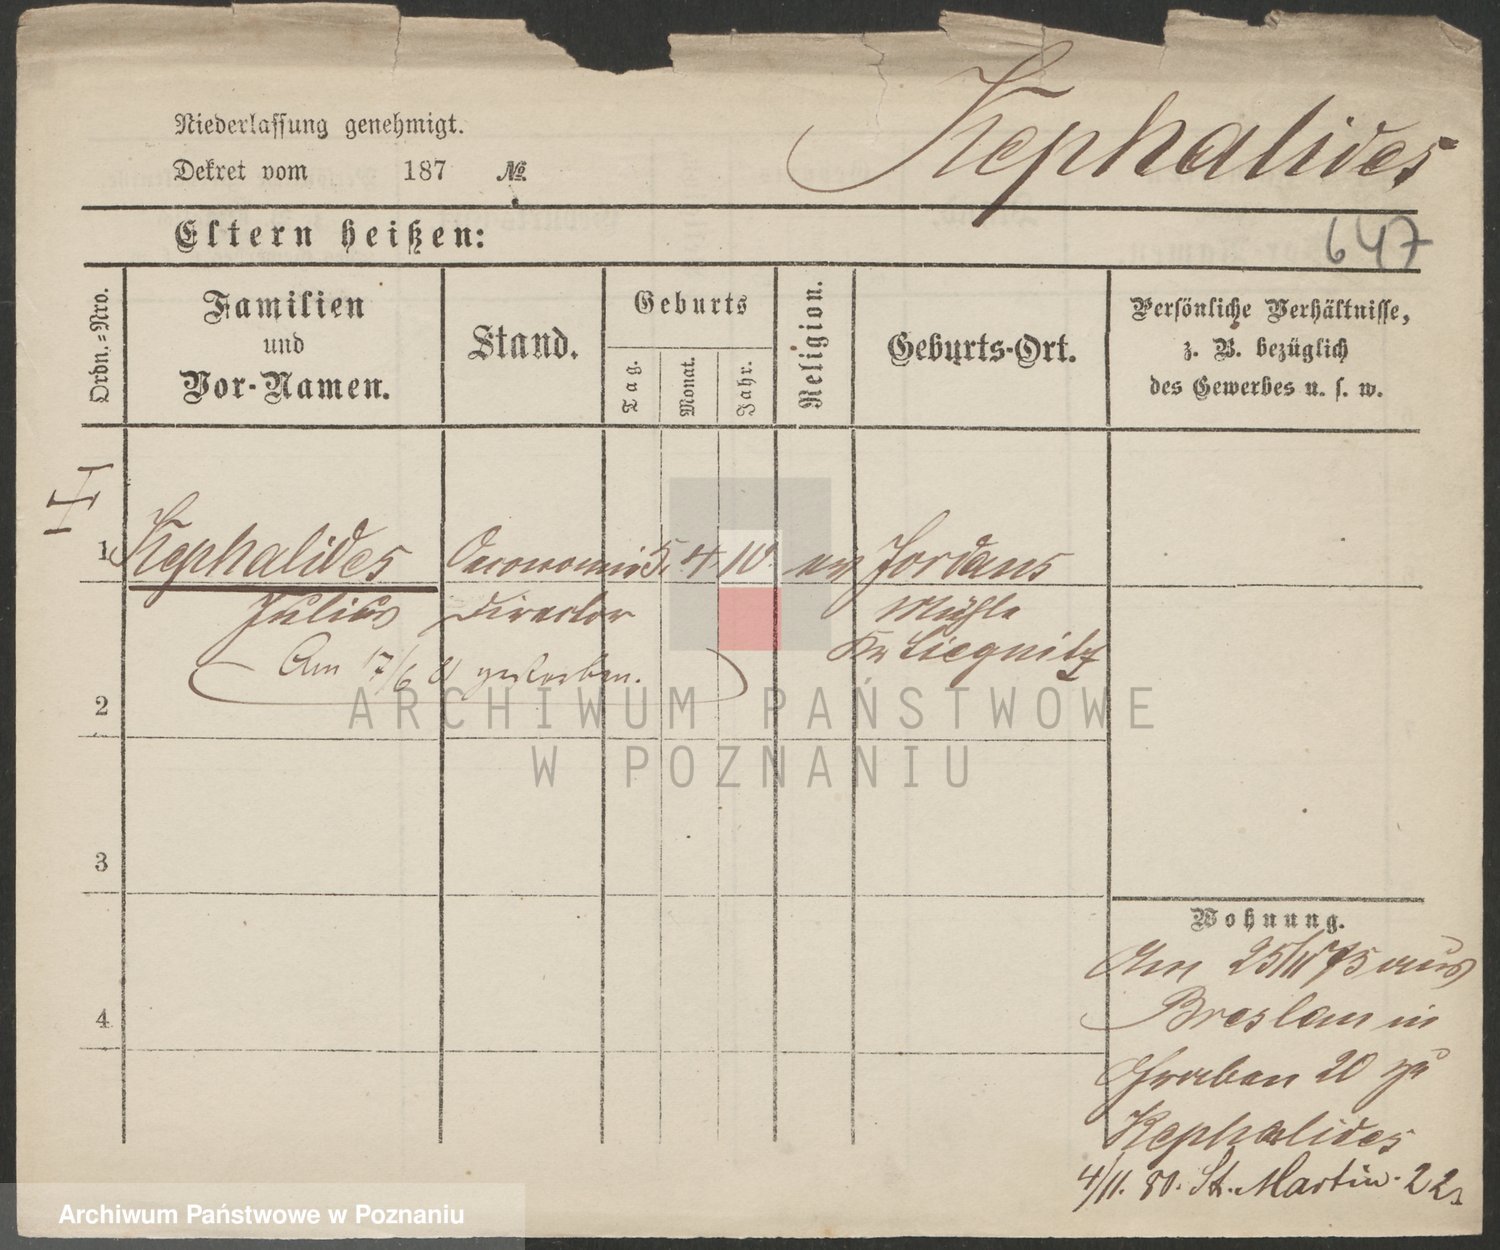 Kephalides
Niederlassung genehmigt.
Dekret vom 187 №.
647
Eltern heißen:
Ordn.-Nro.
Familien
und
Vor-Namen.
Stand.
Geburts
Tag.
Monat.
Jahr.
Religion.
Geburts-Ort.
Persönliche Verhältnisse,
z. B. bezüglich
des Gewerbes u. s. w.
1 Kephalides Oeconomie 5. 4 10 ev Jordans
Julius Director Mühle
Kr Liegnitz
Am 17/6 81 gestorben.
2
3
4
Wohnung.
Am 25/ 75 aus
Breslau in
Graben 20 zu
Kephalides
4/11. 80. St. Martin. 22
ARCHIWUM PAŃSTWOWE
W POZNANIU
Archiwum Państwowe w Poznaniu